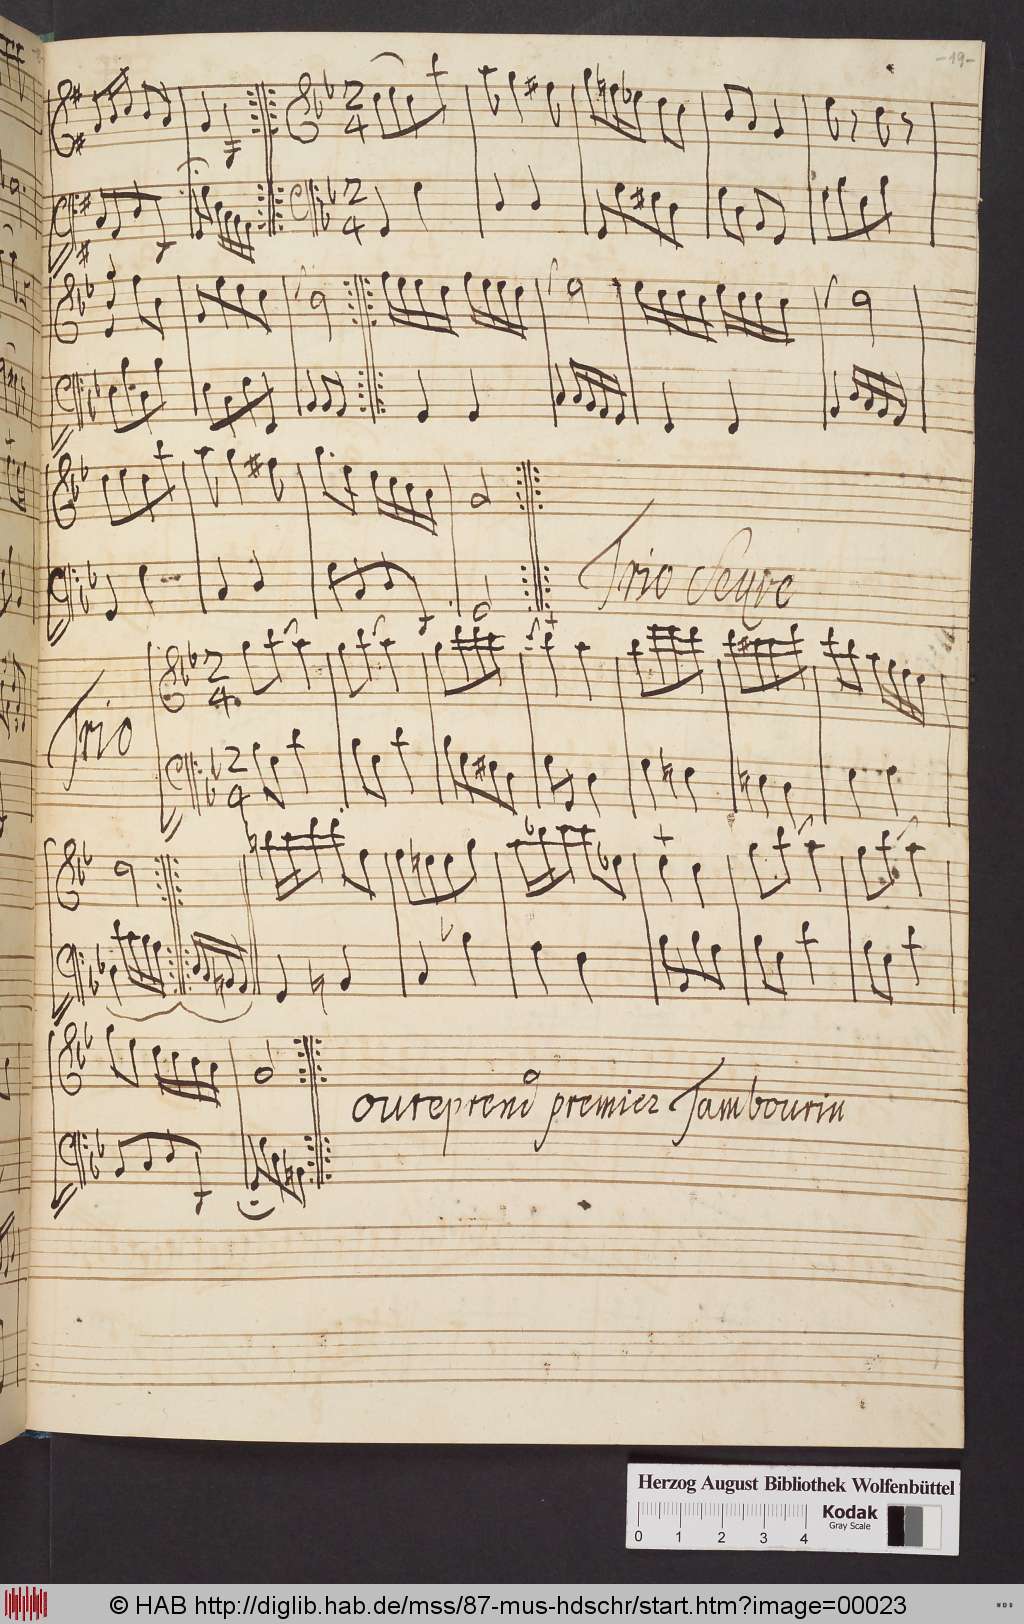 -19-
2
4
2
4
Trio Seyve
Trio
2
4
2
4
oureprend premier Tambourin
Herzog August Bibliothek Wolfenbüttel
Kodak
Gray Scale
0 1 2 3 4
© HAB http://diglib.hab.de/mss/87-mus-hdschr/start.htm?image=00023